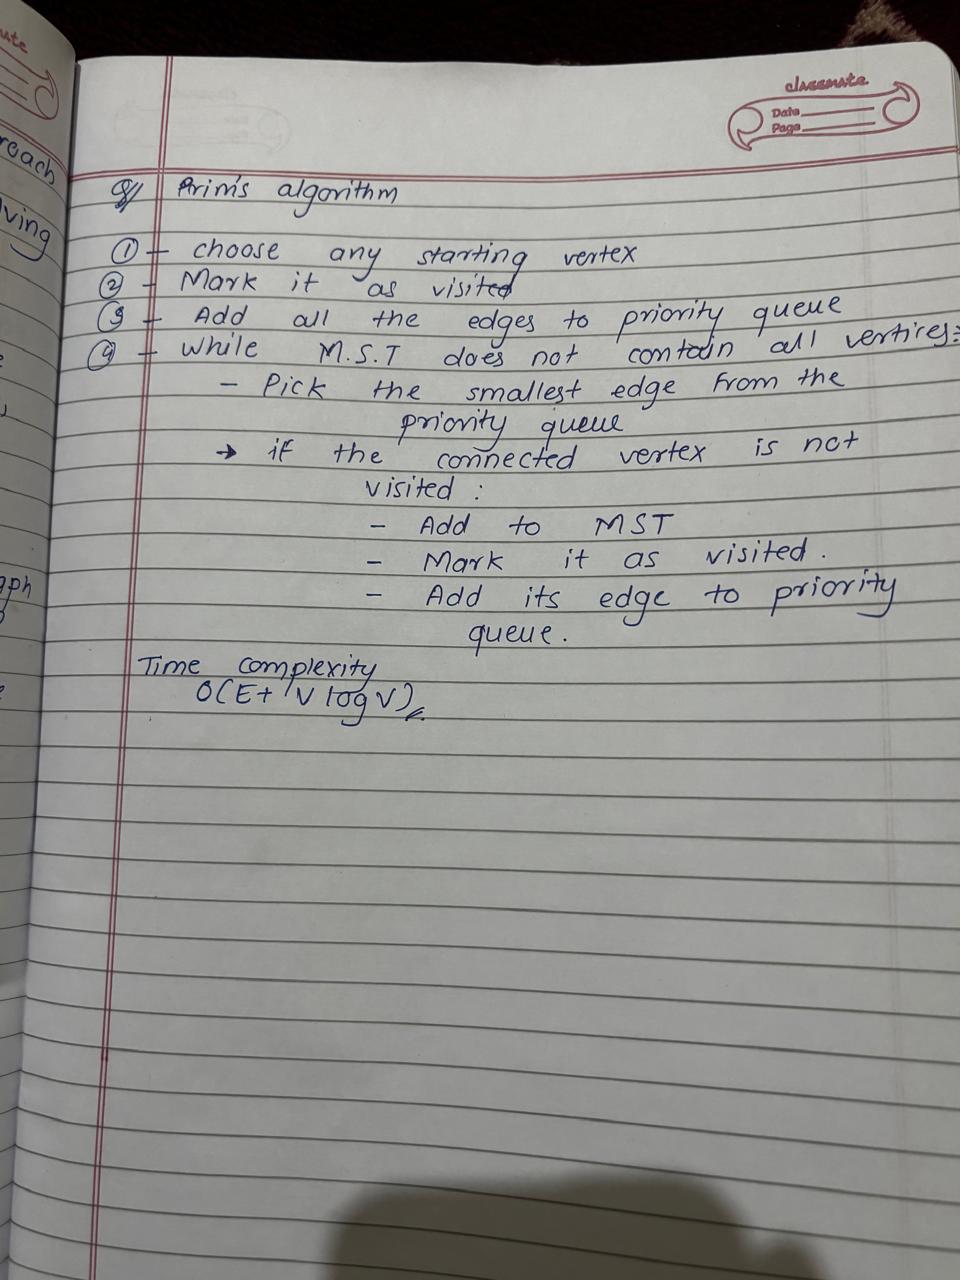 classmate
Date
Page
Q/ Prim's algorithm
① - choose any starting vertex
② - Mark it as visited
③ - Add all the edges to priority queue
④ - While M.S.T does not contain all vertires:
- Pick the smallest edge from the
priority queue
→ if the connected vertex is not
visited :
- Add to MST
- Mark it as visited.
- Add its edge to priority
queue.
Time complexity
O(E+ V log V)
reach
ving